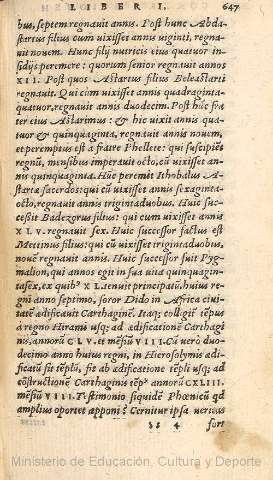 LIBER I. 647
bus, septem regnauit annis. Post hunc Abda-
startus filius cum vixisset annis uiginti, regna-
uit nouem. Hunc filij nutricis eius quatuor in-
sidijs peremere: quorum senior regnauit annos
XII. Post quos Astartus filius Beleastarti
regnauit. Qui cùm vixisset annis quadraginta-
quatuor, regnauit annis duodecim. Post hūc fra
ter eius Astarimus: & hic uixit annis qua
tuor & quinquaginta, regnauit annis nouem,
et peremptus est a fratre Phellete: qui suscipiēs
regnū, mensibus imperauit octo, cū vixisset an-
nis quinquaginta. Hūc peremit Ithobalus A-
startæ sacerdos: qui cū uixisset annis sexaginta-
octo, regnauit annis trigintaduobus. Huic suc-
cessit Badezorus filius: qui cum uixisset annis
XLV. regnauit sex. Huic successor factus est
Mettinus filius: qui cū uixisset trigintaduobus,
nouē regnauit annis. Huic successor fuit Pyg-
malion, qui annos egit in sua uita quinquagin-
tasex, ex quibꝰ XL. tenuit principatū. huius re-
gni anno septimo, soror Dido in Africa ciui-
tatē ædificauit Carthaginē. Itaq; colligit tēpus
a regno Hirami usq; ad ædificationē Carthagi
nis, annorū CLV. et mēsiū VIII. Cū uero duo-
decimo anno huius regni, in Hierosolymis ædi-
ficatū sit tēplū, fit ab ædificatione tēpli usq; ad
cōstructionē Carthaginis tēpꝰ annorū CXLIII.
mēsiū VIII. Testimonio siquidē Phœnicū qd
amplius oportet apponi? Cernitur ipsa ueritas
ss 4 fort
Ministerio de Educación, Cultura y Deporte